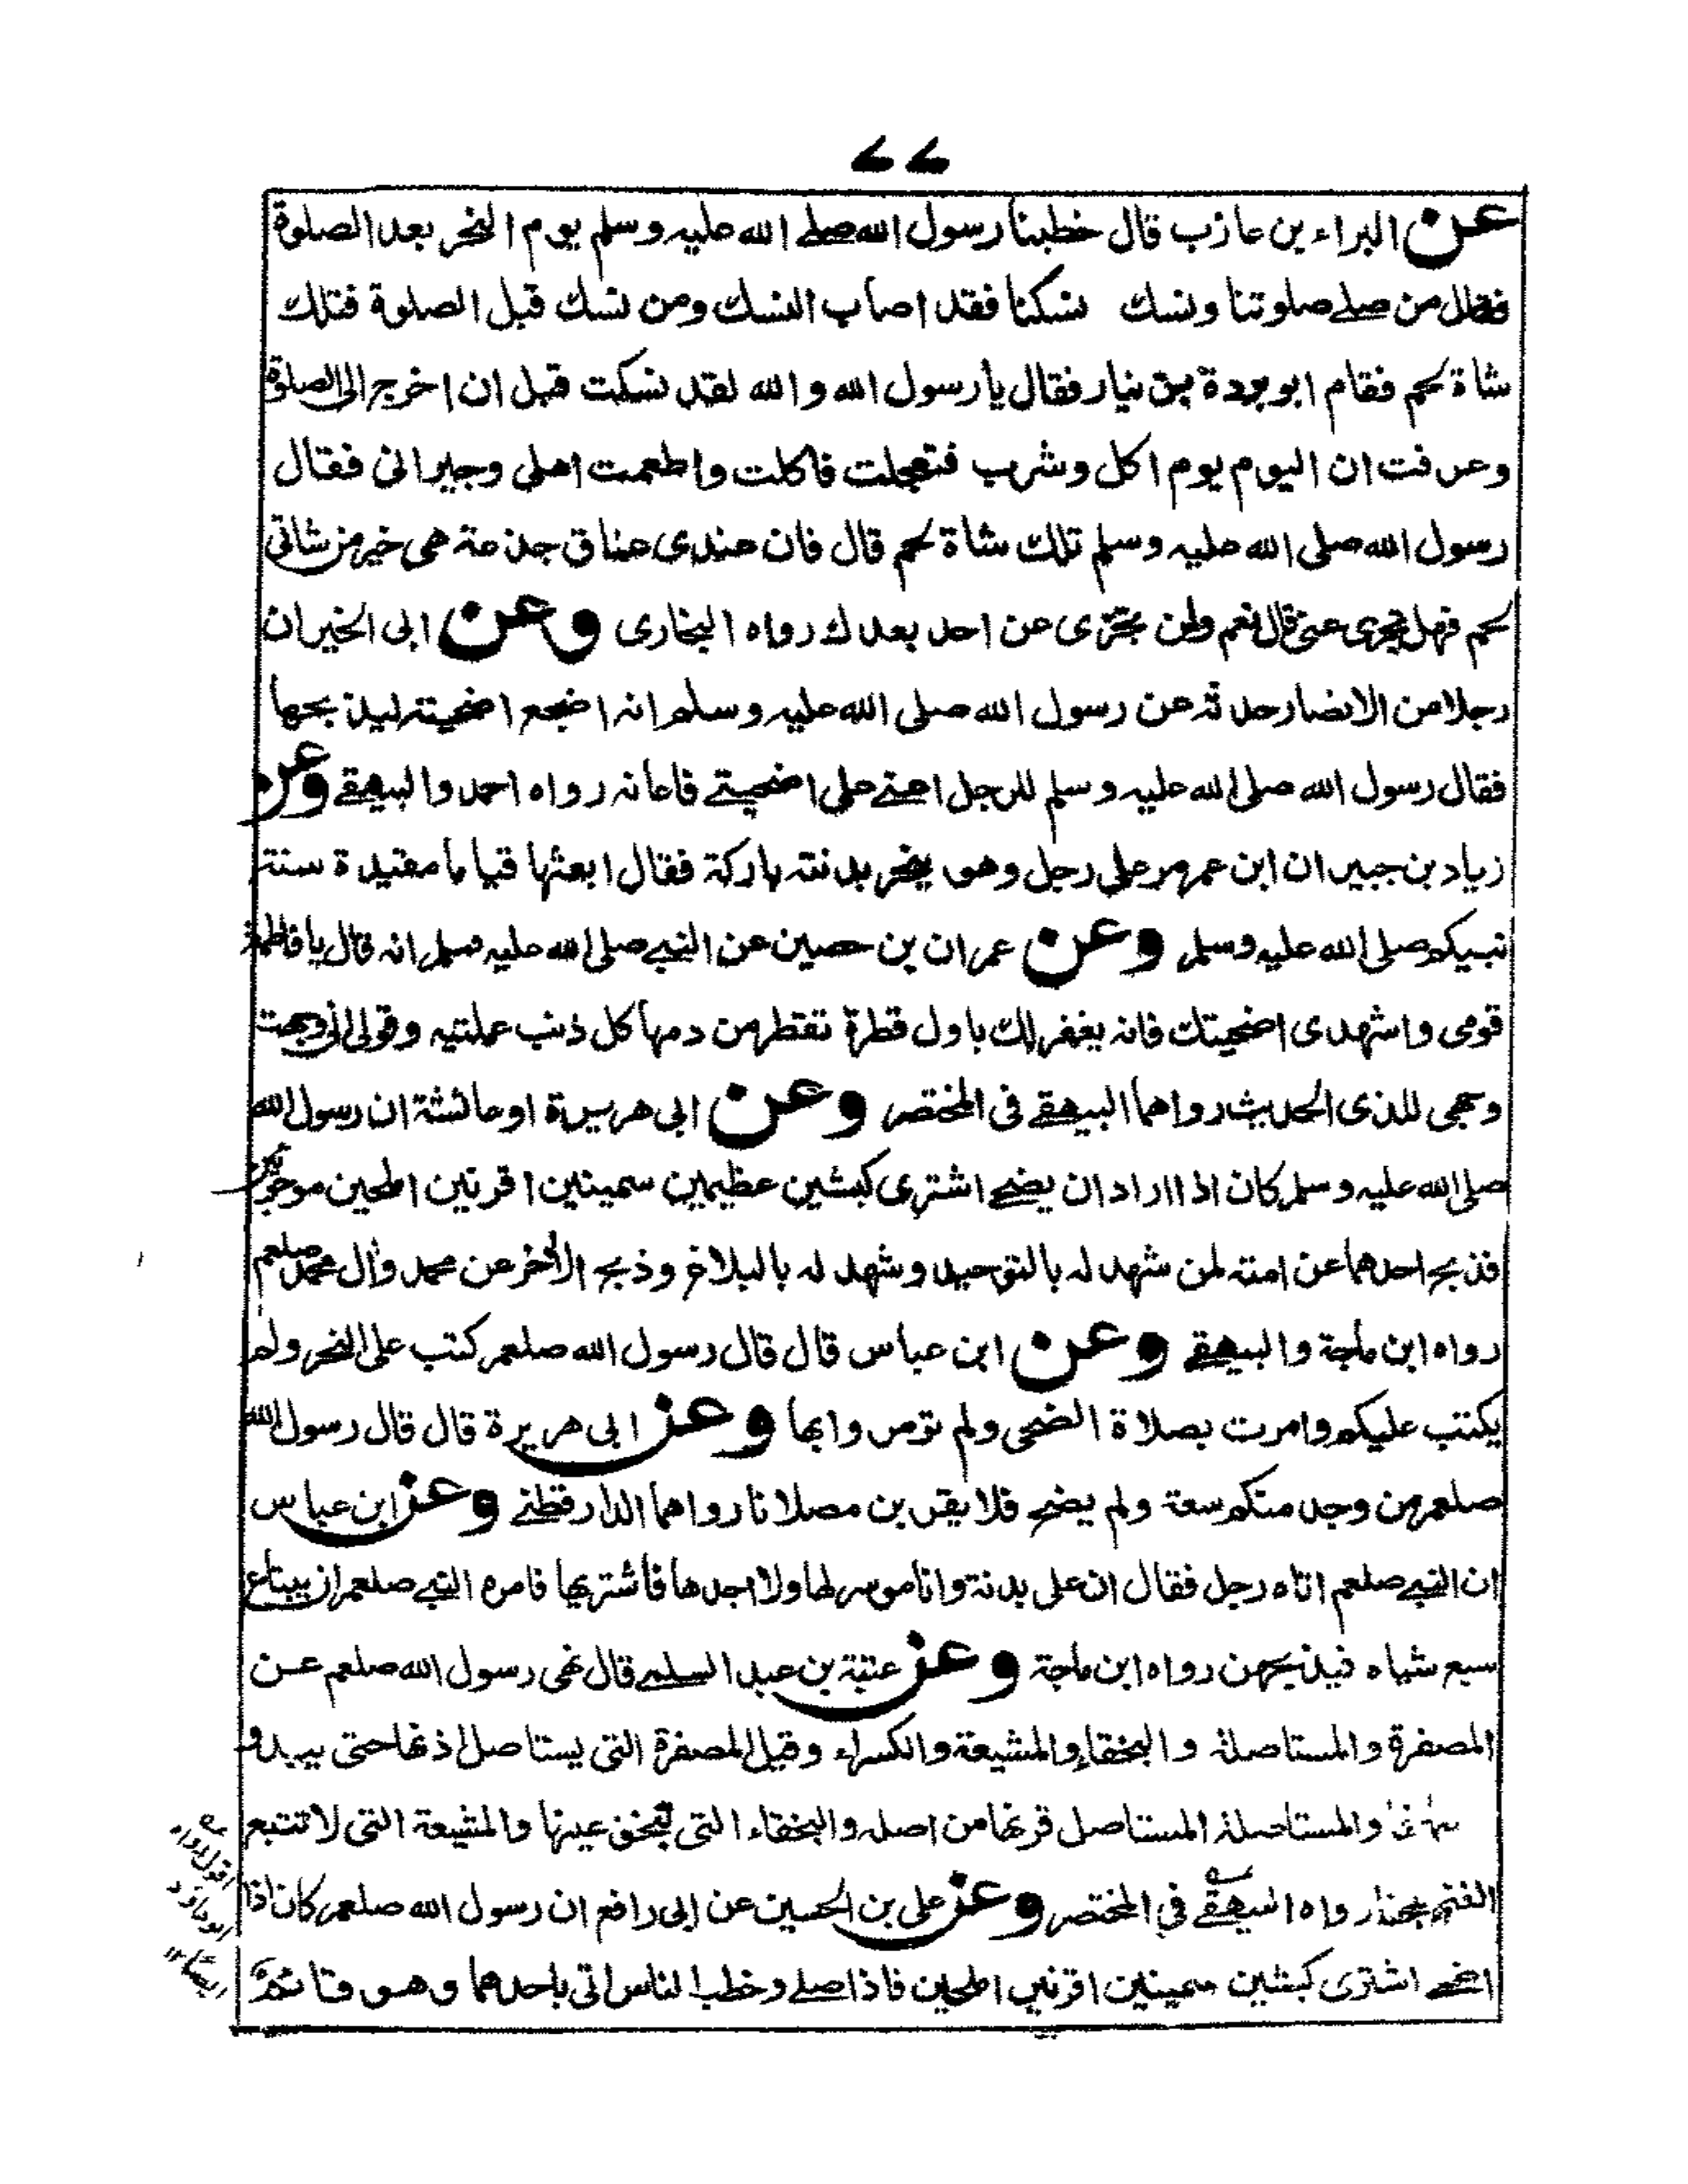 ۷۷
عن البراء بن عازب قال خطبنا رسول الله صلے الله عليه وسلم يوم النحر بعد الصلوة
فقال من صلے صلوتنا ونسك نسكنا فقد اصاب النسك ومن نسك قبل الصلوة فتلك
شاة لحم فقام ابو بردة بن نيار فقال يا رسول الله والله لقد نسكت قبل ان اخرج الى الصلوة
وعرفت ان اليوم يوم اكل وشرب فتعجلت فاكلت واطعمت اهلى وجيرانى فقال
رسول الله صلى الله عليه وسلم تلك شاة لحم قال فان عندى عناق جذعة هى خير من شاتى
لحم فهل تجزى عنى قال نعم ولن تجزى عن احد بعدك رواه البخارى وعن ابى الخير ان
رجلا من الانصار حدثه عن رسول الله صلى الله عليه وسلم انه اضجع اضحيته ليذبحها
فقال رسول الله صلى الله عليه وسلم للرجل اعنے على اضحيتے فاعانه رواه احمد والبيهقے وعن
زياد بن جبير ان ابن عمر مر على رجل وهو ينحر بدنته باركة فقال ابعثها قياما مقيدة سنة
نبيكم صلى الله عليه وسلم وعن عمران بن حصين عن النبے صلى الله عليه وسلم انه قال يا فاطمة
قومى واشهدى اضحيتك فانه يغفر لك باول قطرة تقطر من دمها كل ذنب عملتيه وقولى انى وجهت
وجهى للذى الحديث رواهما البيهقے فى المختصر وعن ابى هريرة او عائشة ان رسول الله
صلى الله عليه وسلم كان اذا اراد ان يضحے اشترى كبشين عظيمين سمينين اقرنين املحين موجوئين
فذبح احدهما عن امته لمن شهد له بالتوحيد وشهد له بالبلاغ وذبح الآخر عن محمد وآل محمد صلعم
رواه ابن ماجة والبيهقے وعن ابن عباس قال قال رسول الله صلعم كتب على النحر ولم
يكتب عليكم وامرت بصلاة الضحى ولم تومروا بها وعن ابى هريرة قال قال رسول الله
صلعم من وجد منكم سعة ولم يضح فلا يقربن مصلانا رواهما الدارقطنے وعن ابن عباس
ان النبے صلعم اتاه رجل فقال ان على بدنة وانا موسر لها ولا اجدها فاشتريها فامره النبے صلعم ان يبتاع
سبع شياه فيذبحهن رواه ابن ماجة وعن عتبة بن عبد السلمے قال نهى رسول الله صلعم عن
المصفرة والمستاصلة والبخقاء والمشيعة والكسراء وقيل المصفرة التى يستاصل اذنها حتى يبدو
والمستاصلة المستاصل قرنها من اصله والبخقاء التى تبخق عينها والمشيعة التى لا تتبع
الغنم رواه البيهقے فى المختصر وعن على بن الحسين عن ابى رافع ان رسول الله صلعم كان اذا
اضحے اشترى كبشين سمينين اقرنين املحين فاذا صلے وخطب الناس اتى باحدهما وهو قائم